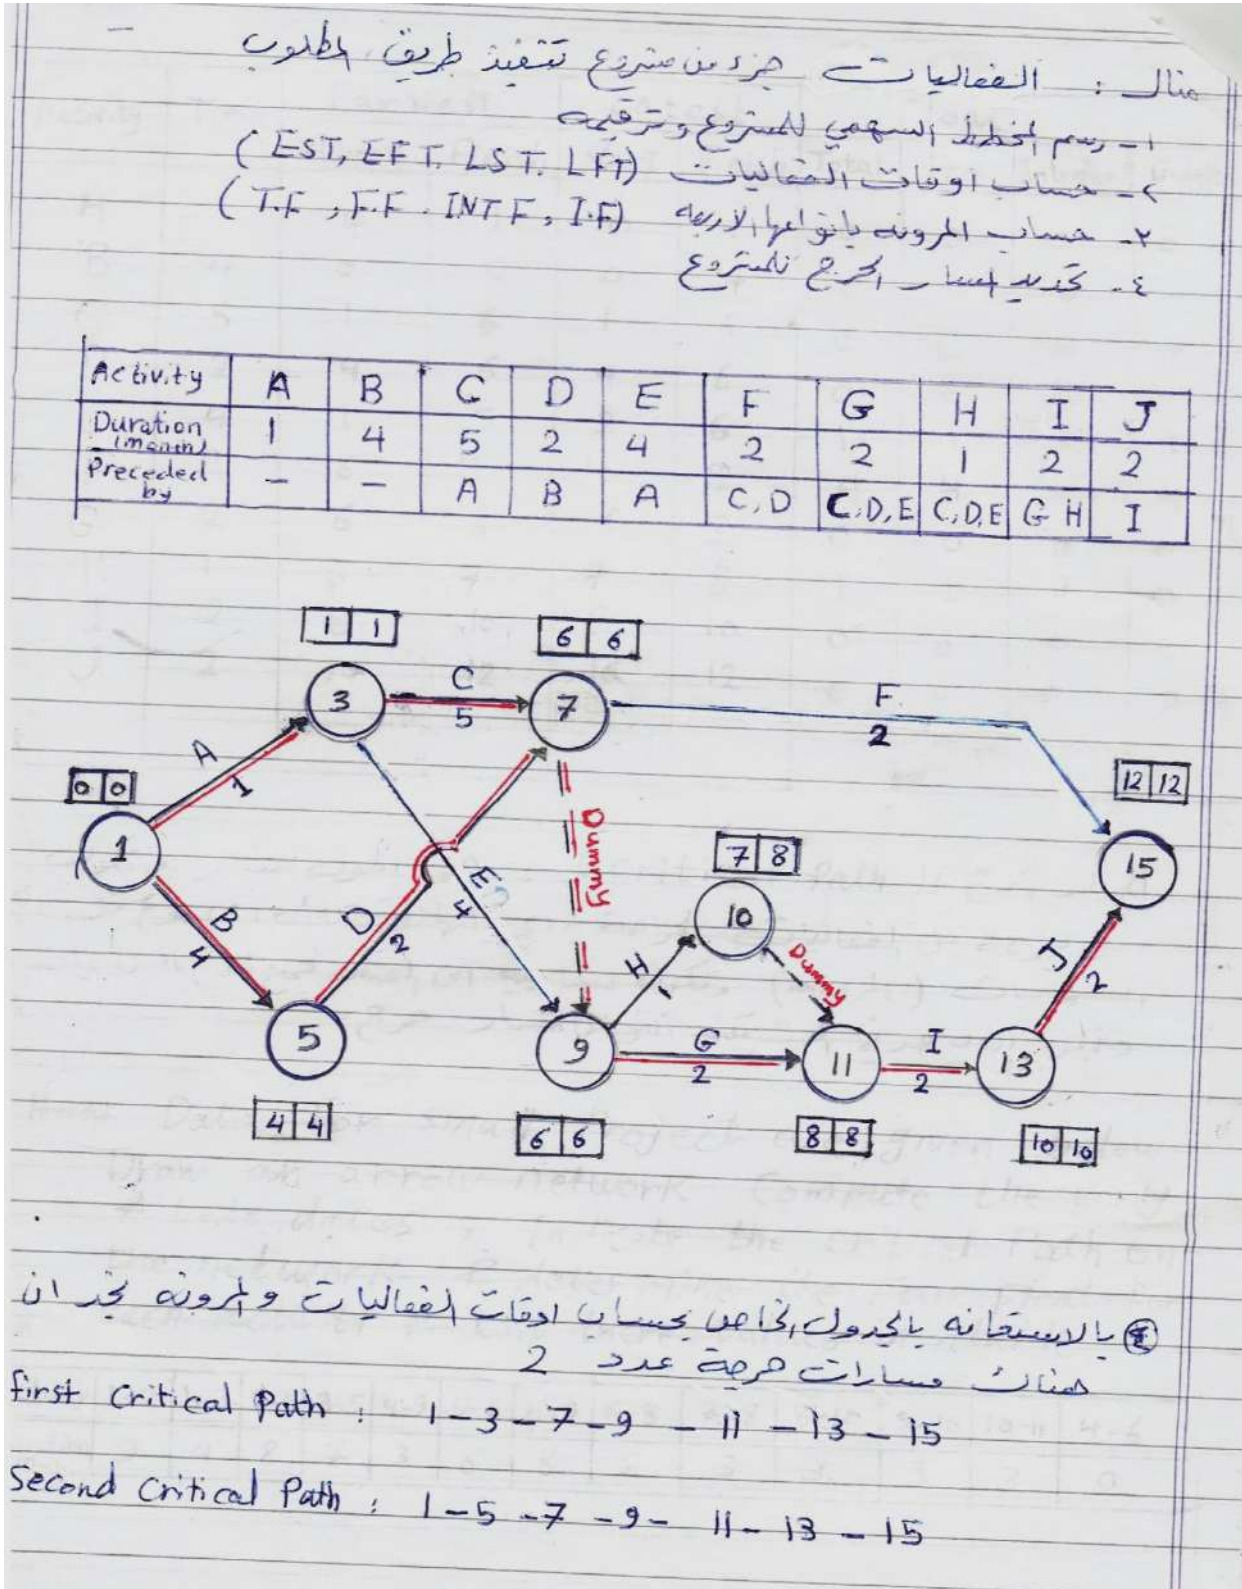 مثال : الفعاليات جزء من مشروع تنفيذ طريق المطلوب
١- رسم المخطط السهمي للمشروع وترقيمه
٢- حساب اوقات الفعاليات (EST, EFT, LST, LFT)
٣- حساب المرونه بانواعها الاربعه (T.F , F.F . INTF , I.F)
٤- تحديد المسار الحرج للمشروع
Activity A B C D E F G H I J
Duration (month) 1 4 5 2 4 2 2 1 2 2
Preceded by - - A B A C,D C,D,E C,D,E G H I
1 1
6 6
3
C
5
7
F
2
A
1
0 0
12 12
1
Dummy
7 8
15
E
4
10
B
4
D
2
H
1
Dummy
J
2
5
9
G
2
11
I
2
13
4 4
6 6
8 8
10 10
٤ بالاستعانه بالجدول الخاص بحساب اوقات الفعاليات والمرونه نجد ان
هناك مسارات حرجة عدد 2
first Critical Path : 1 - 3 - 7 - 9 - 11 - 13 - 15
Second Critical Path : 1 - 5 - 7 - 9 - 11 - 13 - 15